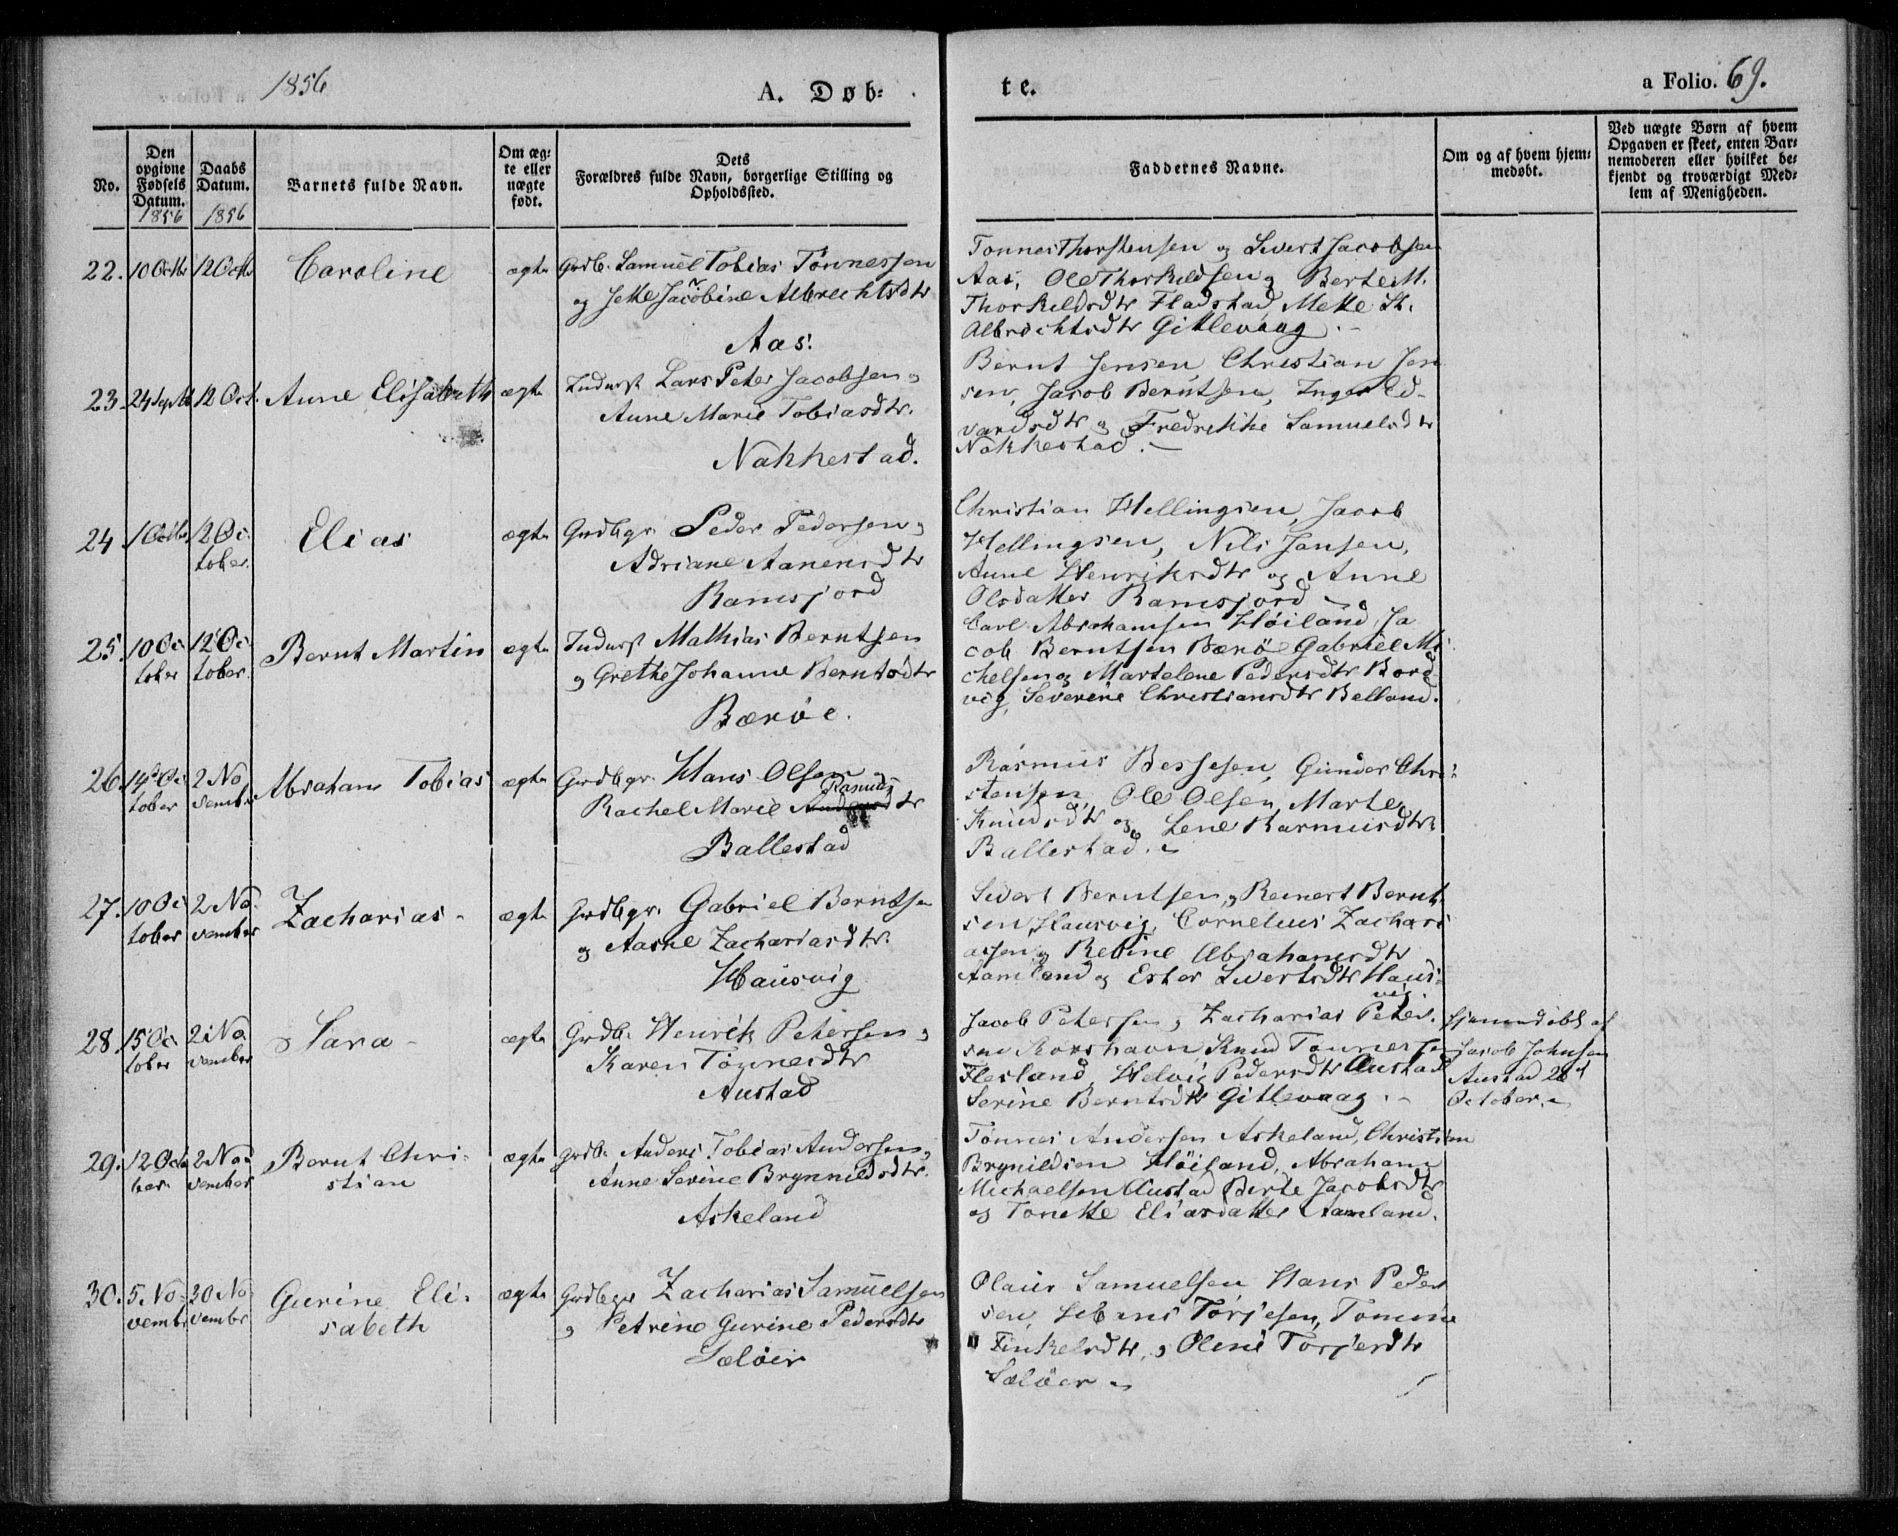 1856
A. Døb-
te.
a Folio. 69.
No.
Den opgivne Fødsels Datum. 1856
Daabs Datum. 1856
Barnets fulde Navn.
Om ægte eller uægte født.
Dets Forældres fulde Navn, borgerlige Stilling og Opholdssted.
Faddernes Navne.
Om og af hvem hjemmedøbt.
Ved uægte Børn af hvem Opgaven er skeet, enten Barnemoderen eller hvilket bekjendt og troværdigt Medlem af Menigheden.
22. 10 Octbr 12 Octbr Caroline ægte Grdb. Samuel Tobias Tønnessen
og Jette Jacobine Albrechtsdtr
Aas.
Tønnes Thorstensen og Sivert Jacobsen
Aas, Ole Thorkildsen og Berte M.
Thorkildsdtr Fladstad, Mette St.
Albrechtsdtr Gitlevaag. -
23. 24 Septb 12 Oct. Anne Elisabeth ægte Inderst Lars Peter Jacobsen og
Anne Marie Tobiasdtr.
Nakkestad.
Bernt Jensen, Christian Jen
sen, Jacob Berntsen, Inger Ed-
vardsdtr og Fredrikke Samuelsdtr
Nakkestad. -
24. 1 Octbr 12 Oc-
tober. Elias ægte Grdbgr Peder Pedersen og
Adriane Aanensdtr
Ramsjord
Christian Hellingsen, Jacob
Hellingsen, Nils Jansen,
Anne Henriksdtr og Anne
Olsdatter Ramsjord -
25. 10 Oc-
tober 12 Oc-
tober. Bernt Martin ægte Inderst Mathias Berntsen
og Grethe Johanne Berntsdtr
Bærøe.
Carl Abrahamsen Høiland, Ja
cob Berntsen Bærø Gabriel Mi-
chelsen og Martelene Pedersdtr Bord
vig, Severine Christiansdtr Belland.
26. 14de Oc
tober 2 No
vember Abraham Tobias ægte Grdbgr. Hans Olsen og
Rachel Marie Rasmusdtr
Ballestad
Rasmus Bessesen, Gunder Chri-
stensen, Ole Olsen, Marte
Knudsdtr og Lene Rasmusdtr
Ballestad. -
27. 10 Oc
tober 2 No-
vember Zacharias - ægte Grdbgr. Gabriel Berntsen
og Aasne Zachariasdtr.
Hausvig
Sivert Berntsen, og Reinert Bernt
sen, Hausvig, Cornelius Zachari
assen og Rebine Abrahamsdtr
Aamland og Ester Sivertsdtr Haus-
vig
28. 15 Oc
tober 2 No
vember Sara - ægte Grdb. Henrik Petersen og
Karen Tønnesdtr
Austad
Jacob Petersen, Zacharias Peter-
sen Korshavn, Knud Tønnessen
Flesland, Helvig Pedersdtr Austad
Serine Berntsdtr Gitlevaag. -
Hjemmedøbt af
Jacob Johnsen
Austad 26d
October. -
29. 12 Octo
ber 2 No-
vember Bernt Chri-
stian ægte grdb. Anders Tobias Andersen og
Anne Serine Brynnildsdtr.
Askeland
Tønnes Andersen Askeland, Christian
Brynildsen Høiland, Abraham
Michaelsen Austad Berte Jacobsdtr
og Tonette Eliasdatter Aamland.
30. 5 No-
vembr 30 No
vembr Gurine Eli-
sabeth ægte Grdbgr Zacharias Samuelsen
og Petrine Gurine Pedersdtr
Sæløer
Olaus Samuelsen Hans Peder
sen, Hans Torjesen, Tomine
Tinkelsdtr, og Olene Torjesdtr
Sæløer -